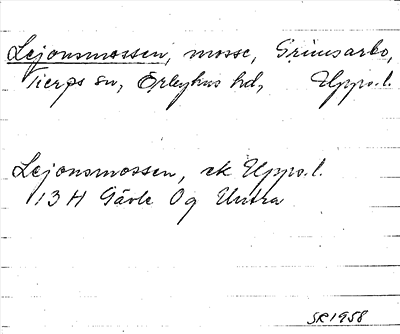 Lejonsmossen, mosse, Grimsarbo,
Tierps sn, Örbyhus hd, Upps.l.
Lejonsmossen, ek Upps.l.
13 H Gävle Og Untra
SR 1958